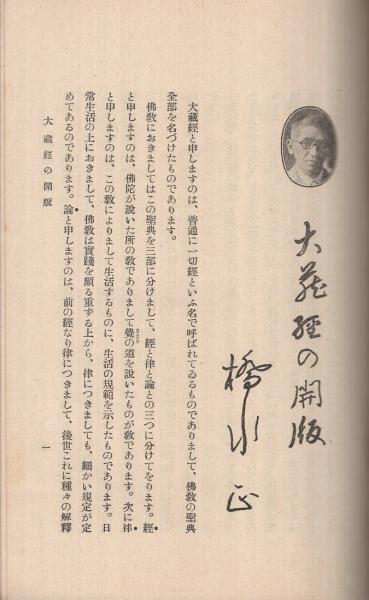 大藏經の開版
橋川正
大藏經と申しますのは、普通に一切經といふ名で呼ばれてゐるものでありまして、佛敎の聖典
全部を名づけたものであります。
佛敎におきましてはこの聖典を三部に分けまして、經と律と論との三つに分けてをります。經
と申しますのは、佛陀が說いた所の敎でありまして覺の道を說いたものが敎であります。次に律
と申しますのは、この敎によりまして生活するものに、生活の規範を示したものであります。日
常生活の上におきまして、佛敎は實踐を頗る重ずる上から、律につきましても、細かい規定が定
めてあるのであります。論と申しますのは、前の經なり律につきまして、後世これに種々の解釋
大藏經の開版
一